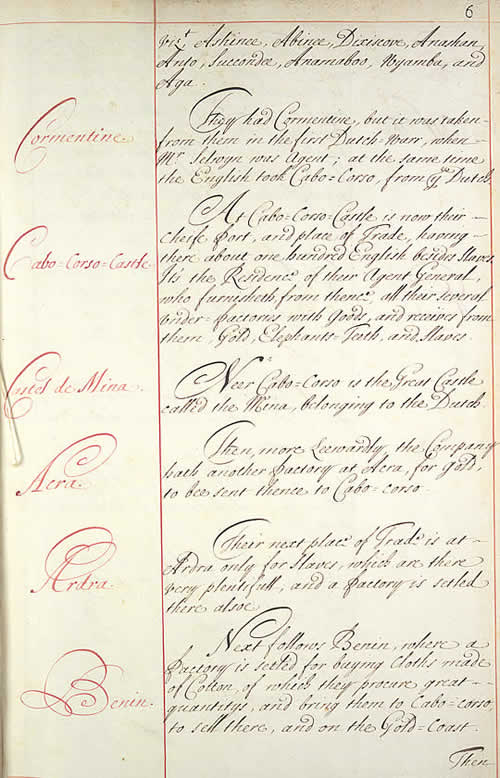 6
viz.t Askince, Abinee, Dixiscove, Anashan,
Anto, Succondee, Anamaboo, Wyamba, and
Aga.
Cormentine.
They had Cormentine, but it was taken
from them in the first Dutch-Warr, when
Mr. Selwyn was Agent; at the same time
the English took Cabo=Corso, from ye Dutch.
Cabo=Corso=Castle.
At Cabo=Corso=Castle is now their
cheife Port, and place of Trade, having
there about one hundred English besids Slaves.
Its the Residence of their Agent General,
who furnisheth from thence, all their several
under=Factories with Goods, and receives from
them, Gold, Elephants-Teeth, and Slaves.
Castel de Mina.
Neer Cabo=Corso is the Great Castle
called the Mina, belonging to the Dutch.
Acra.
Then, more Leewardly, the Company
hath another Factory at Acra, for Gold,
to bee sent thence to Cabo=corso.
Ardra.
Their next place of Trade is at
Ardra only for Slaves, which are there
very plentifull, and a Factory is setled
there alsoe
Benin.
Next follows Benin, where a
Factory is setled for buying Cloths made
of Cotton, of which they procure great
quantitys, and bring them to Cabo=corso,
to sell there, and on the Gold=Coast.
Then